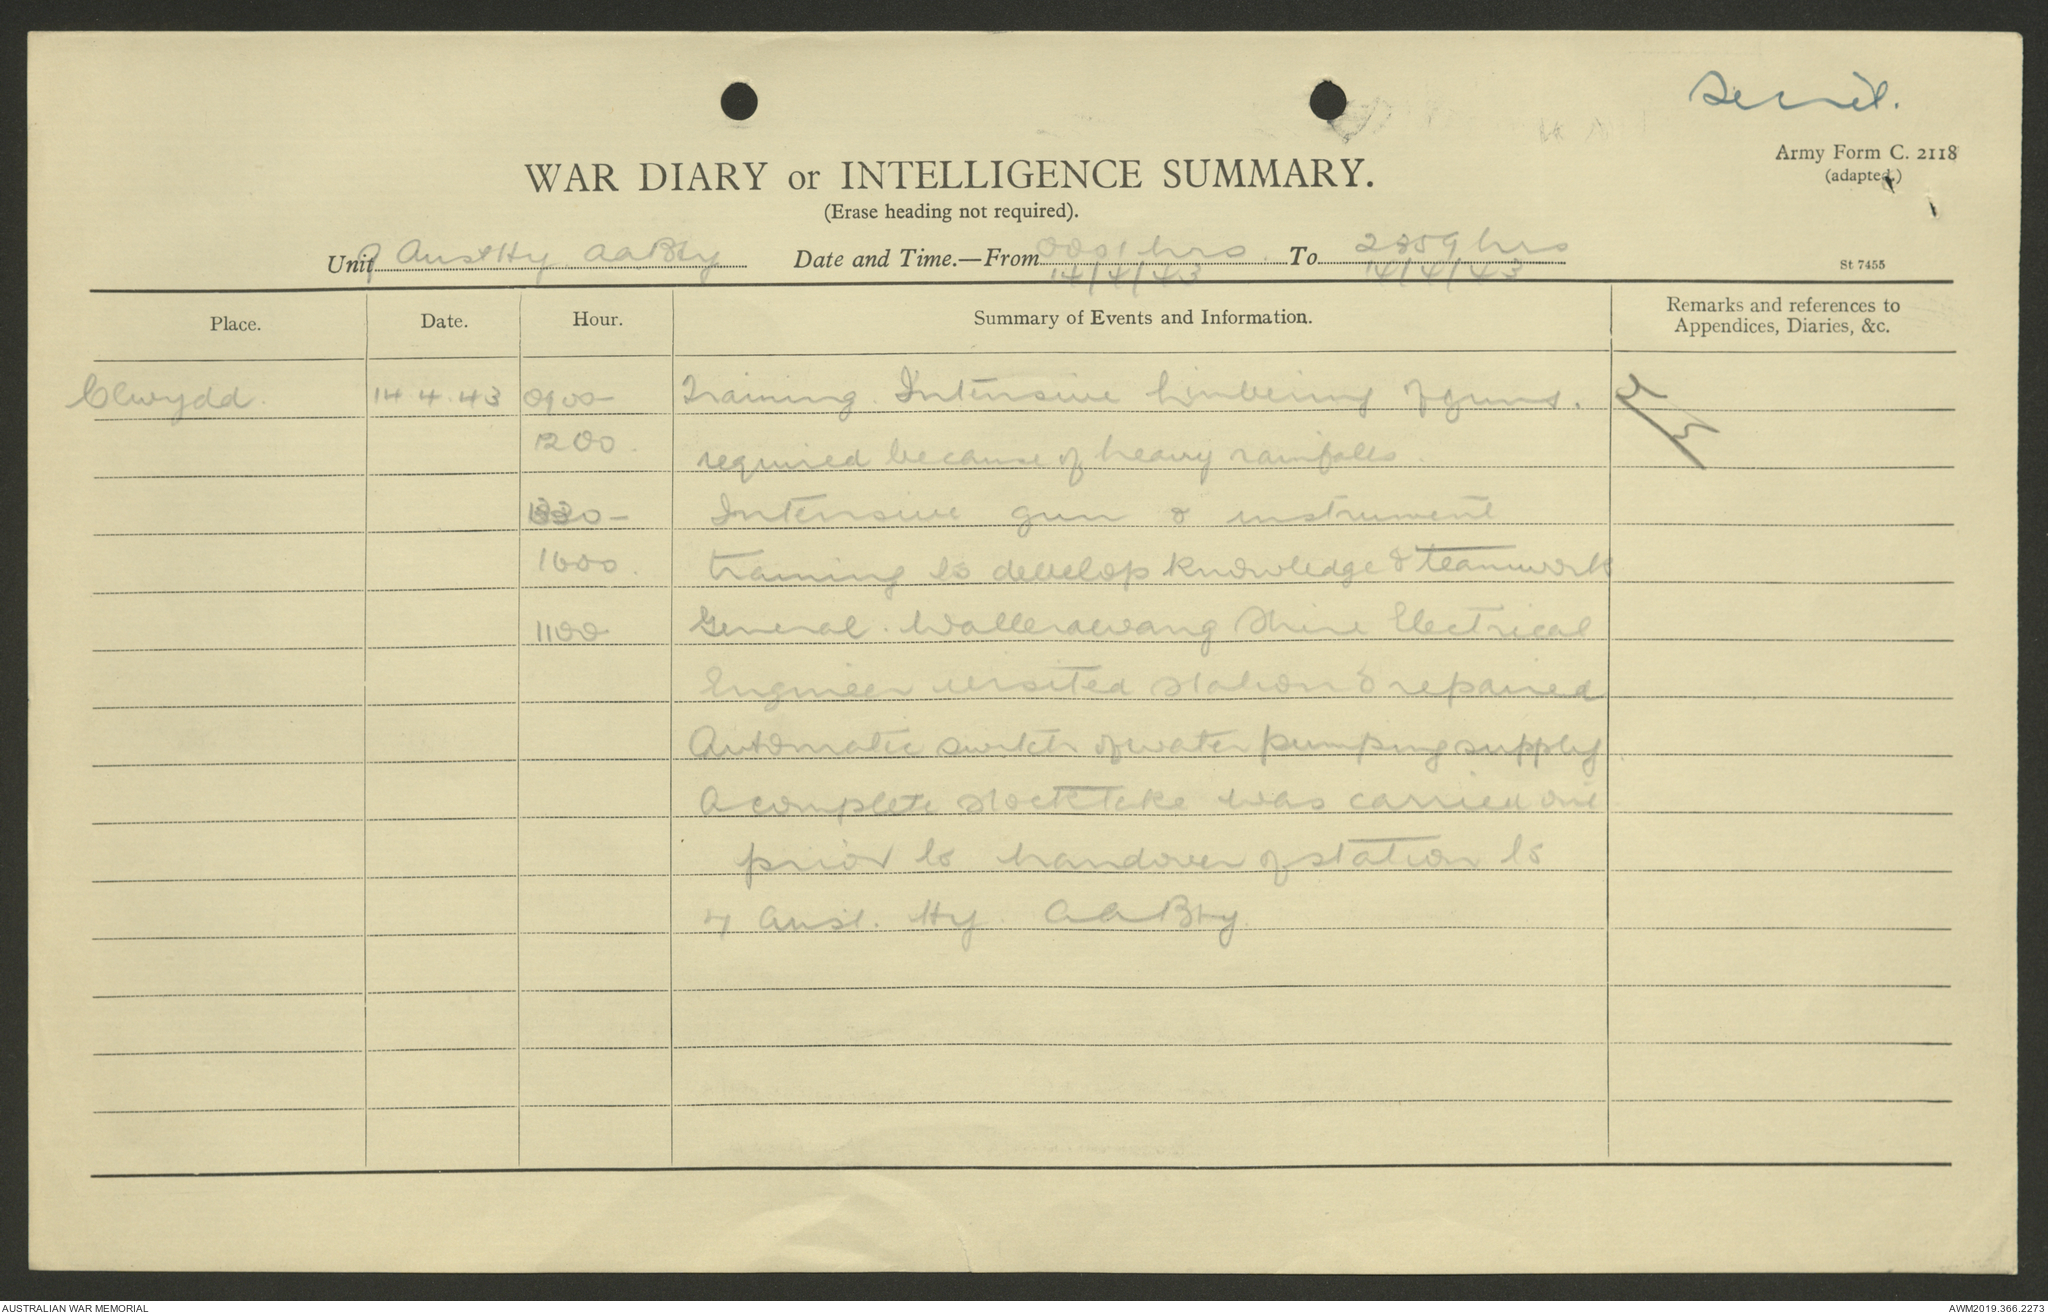 Secret.
Army Form C. 2118
(adapted.)
WAR DIARY or INTELLIGENCE SUMMARY.
(Erase heading not required).
Unit 9 Aust Hy AA Bty Date and Time.—From 0001 hrs To 2359 hrs
14/4/43 14/4/43
St 7455
Place. Date. Hour. Summary of Events and Information. Remarks and references to
Appendices, Diaries, &c.
Clwydd. 14.4.43 0900- Training. Intensive limbering of guns.
1200. required because of heavy rainfalls.
1330- Intensive gun & instrument
1600. training to develop knowledge & teamwork
1100 General. Wallerawang Shire Electrical
Engineer visited station & repaired
Automatic switch of water pumping supply
A complete stocktake was carried out
prior to handover of station to
Aust. Hy. AA Bty.
AUSTRALIAN WAR MEMORIAL
AWM2019.366.2273